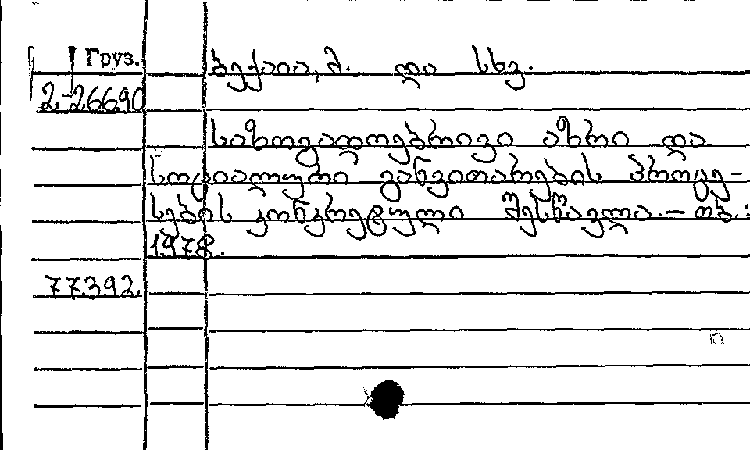 Груз.
ბექაია, მ. და სხვ.
2-26690
საზოგადოებრივი აზრი და
სოციალური განვითარების პროცე-
სების კონკრეტული შესწავლა. – თბ.:
1978.
77392.